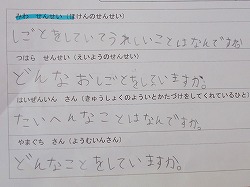 みわ　せんせい（ほけんのせんせい）
しごとをしていてうれしいことはなんですか
つはら　せんせい（えいようのせんせい）
どんなおしごとをしていますか。
はいぜんいん　さん（きゅうしょくのよういとかたづけをしてくれているひと）
たいへんなことはなんですか。
やまぐち　さん（ようむいんさん）
どんなことをしていますか。